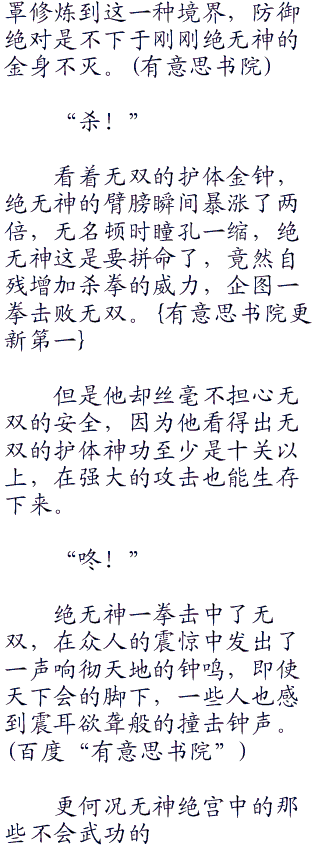 罩修炼到这一种境界，防御
绝对是不下于刚刚绝无神的
金身不灭。(有意思书院)
“杀！”
看着无双的护体金钟，
绝无神的臂膀瞬间暴涨了两
倍，无名顿时瞳孔一缩，绝
无神这是要拼命了，竟然自
残增加杀拳的威力，企图一
拳击败无双。{有意思书院更
新第一}
但是他却丝毫不担心无
双的安全，因为他看得出无
双的护体神功至少是十关以
上，在强大的攻击也能生存
下来。
“咚！”
绝无神一拳击中了无
双，在众人的震惊中发出了
一声响彻天地的钟鸣，即使
天下会的脚下，一些人也感
到震耳欲聋般的撞击钟声。
(百度“有意思书院”)
更何况无神绝宫中的那
些不会武功的